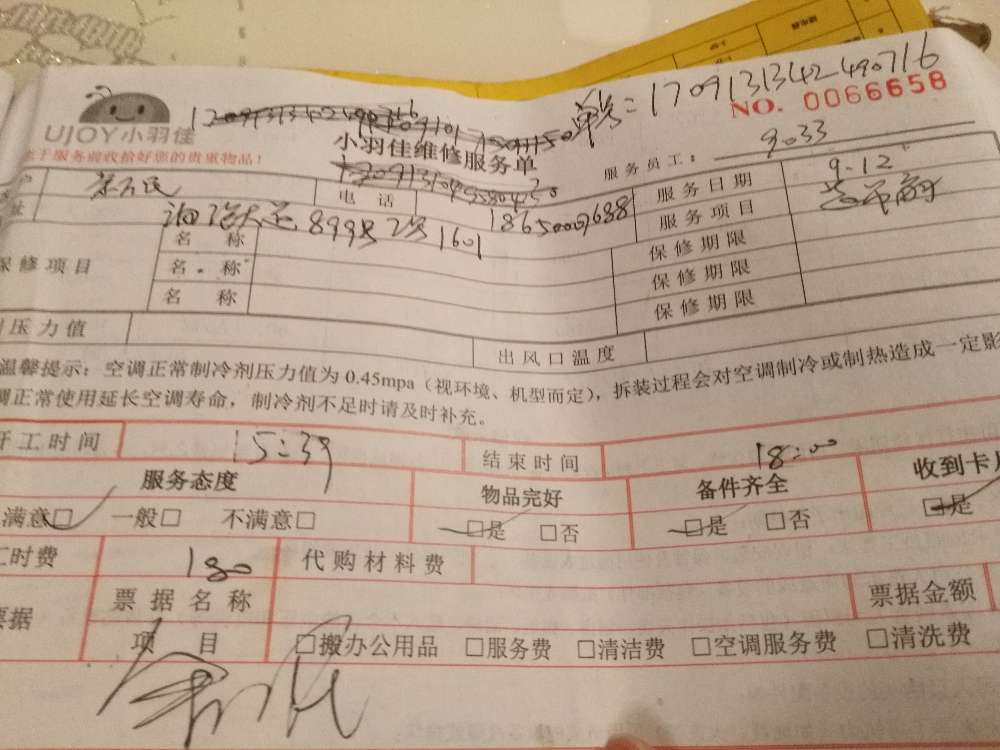 单号=1709131342490716
NO. 0066658
UJOY小羽佳
小羽佳维修服务单
服务前收拾好您的贵重物品!
服务员工: 9033
电话 18650007688 服务日期 9.12
899号 2号 1601 服务项目
保修项目 名称 保修期限
名称 保修期限
名称 保修期限
压力值 出风口温度
温馨提示:空调正常制冷剂压力值为0.45mpa(视环境、机型而定),拆装过程会对空调制冷或制热造成一定影
调正常使用延长空调寿命,制冷剂不足时请及时补充。
开工时间 15:39 结束时间 18:00
服务态度 物品完好 备件齐全 收到卡片
满意□ 一般□ 不满意□ □是 □否 □是 □否 □是
工时费 180 代购材料费
票据 票据名称 票据金额
项目 □搬办公用品 □服务费 □清洁费 □空调服务费 □清洗费